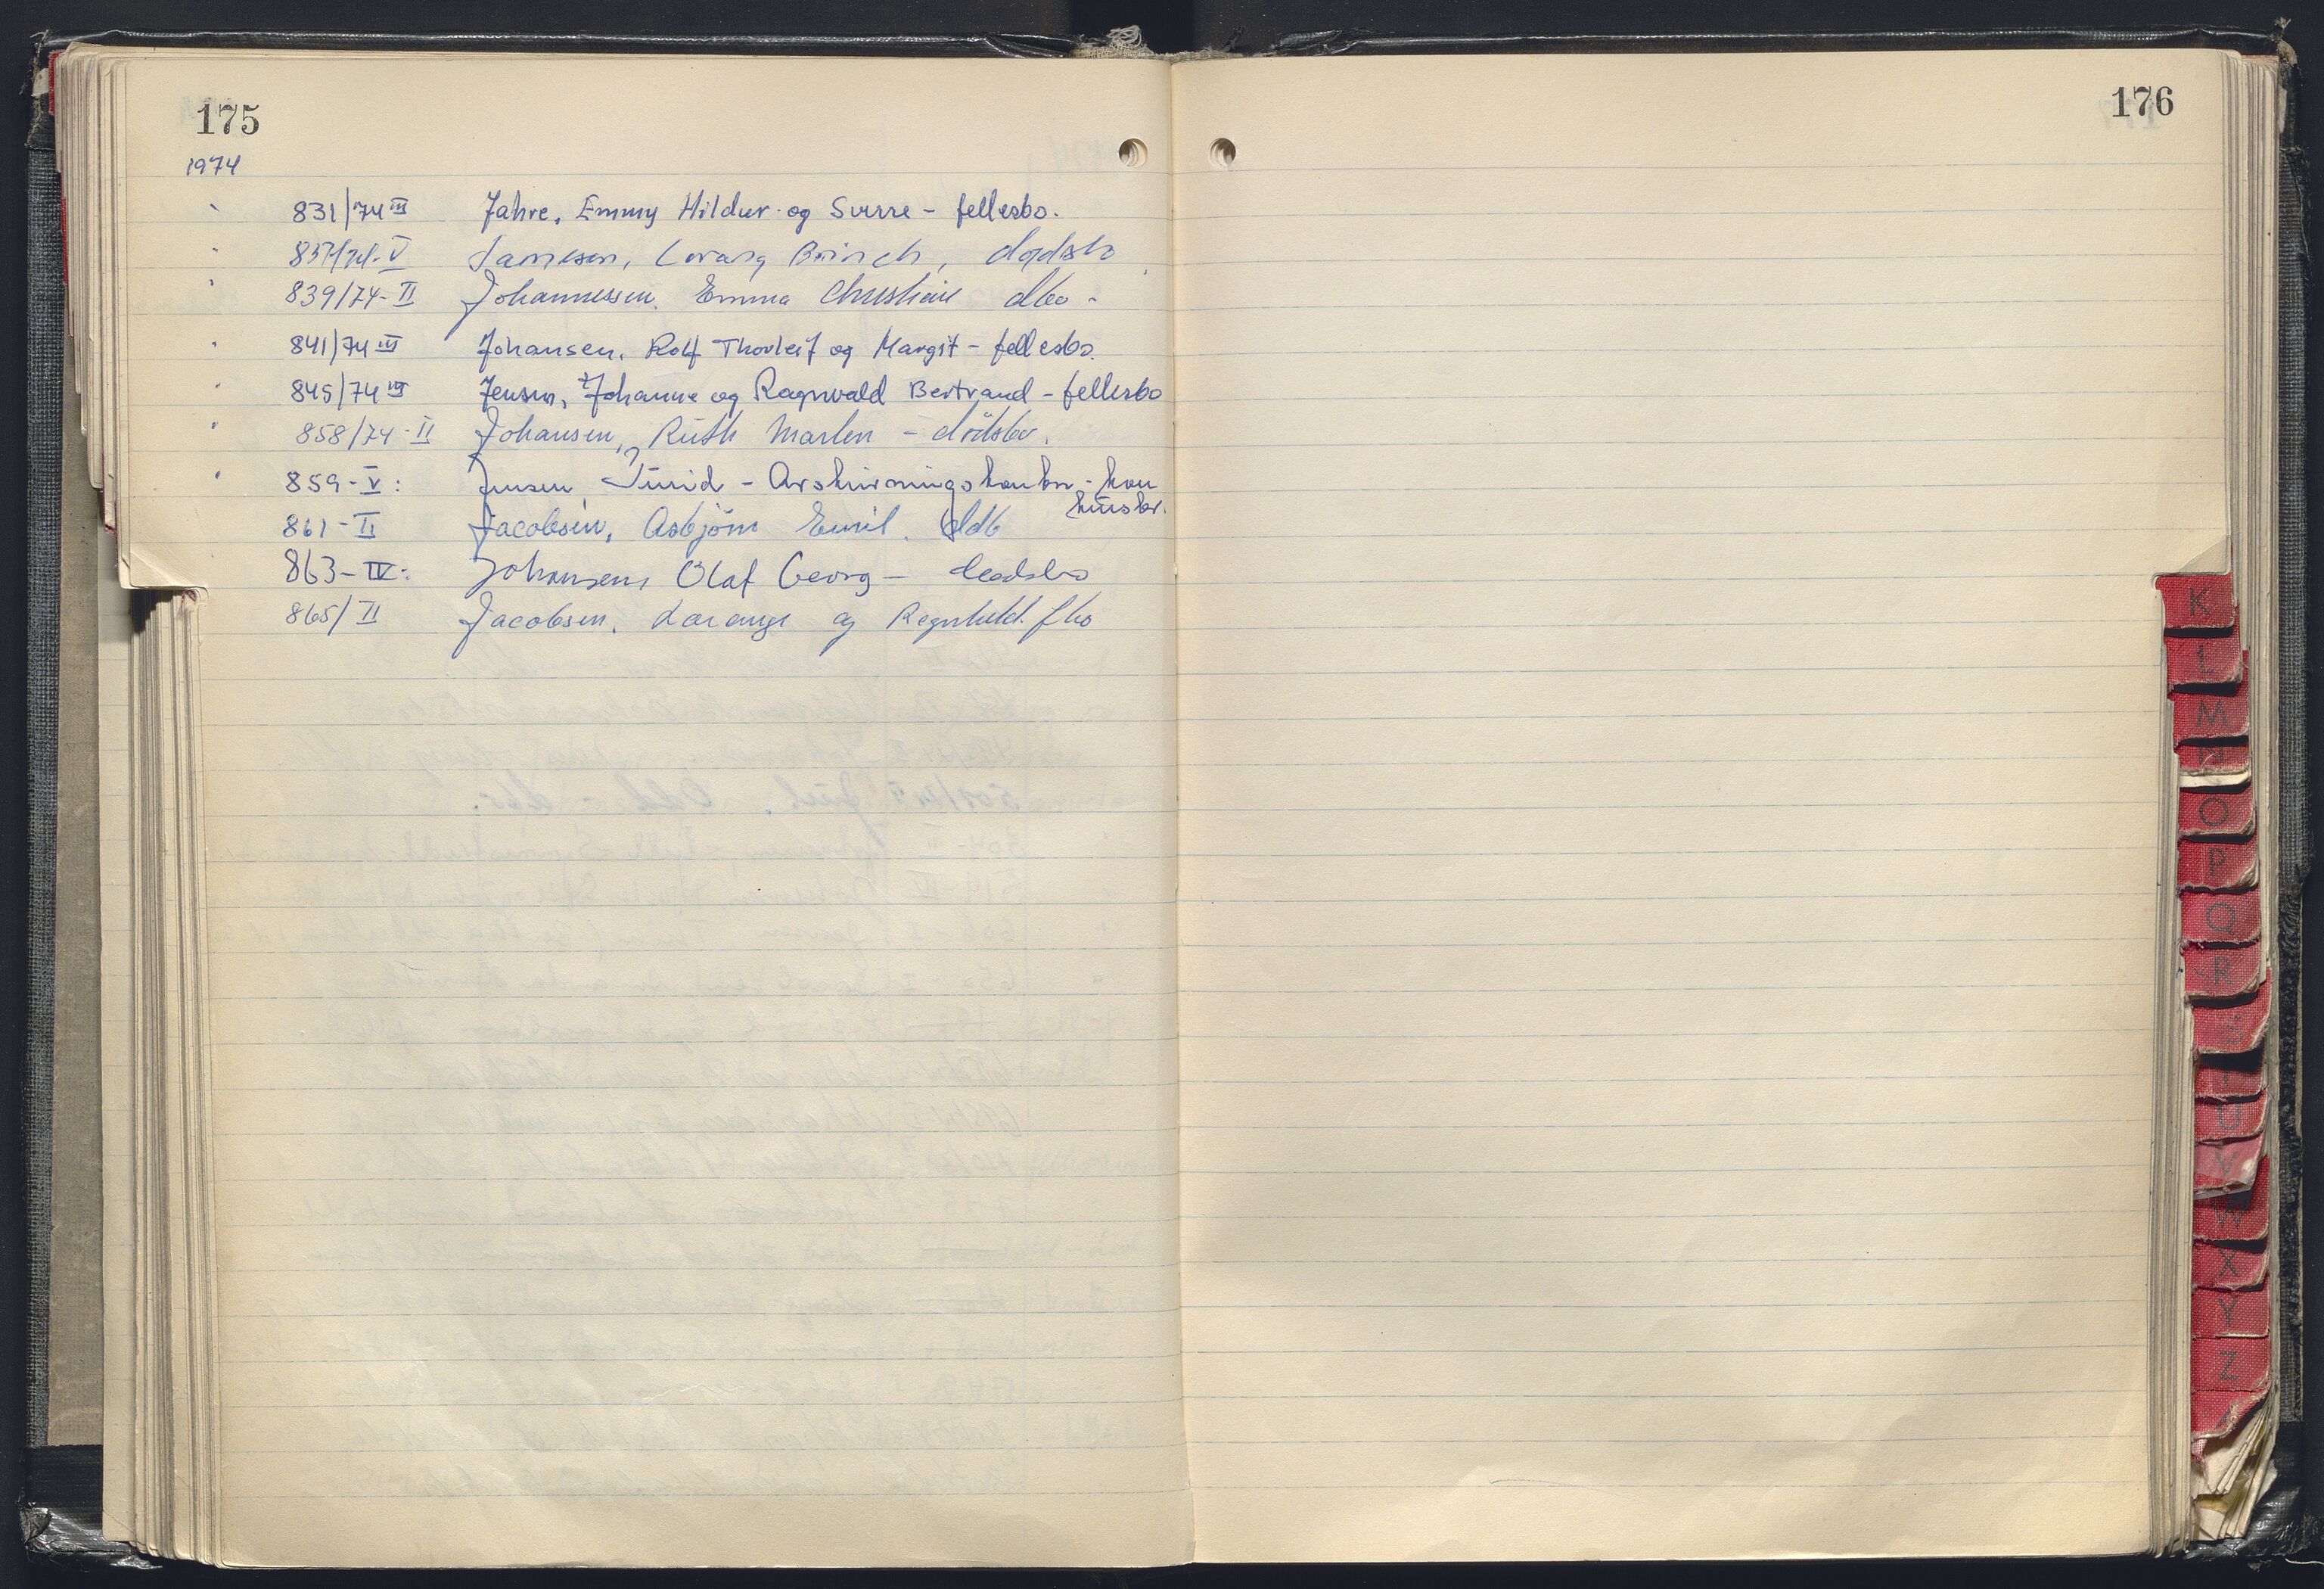 175
176
1974
831/74 III Jahre, Emmy Hildur og Sverre - fellesbo.
837/74-V Jamesen, Brinch, dødsbo
839/74-II Johannessen, Emma Christine dbo -
841/74 III Johansen, Rolf Thorleif og Margit - fellesbo.
845/74 III Jensen, Johanne og Ragnvald Bertrand - fellesbo
858/74-II Johansen, Ruth Marlen - dödsbo.
859-V: Jensen, Turid - - kon
kursbr.
861-II Jacobsen, Asbjörn Emil. ddb
863-IV: Johansen, Olaf Georg - dødsbo
865/II Jacobsen, og Ragnhild. fbo
K
L
M
N
O
P
Q
R
S
T
U
V
W
X
Y
Z